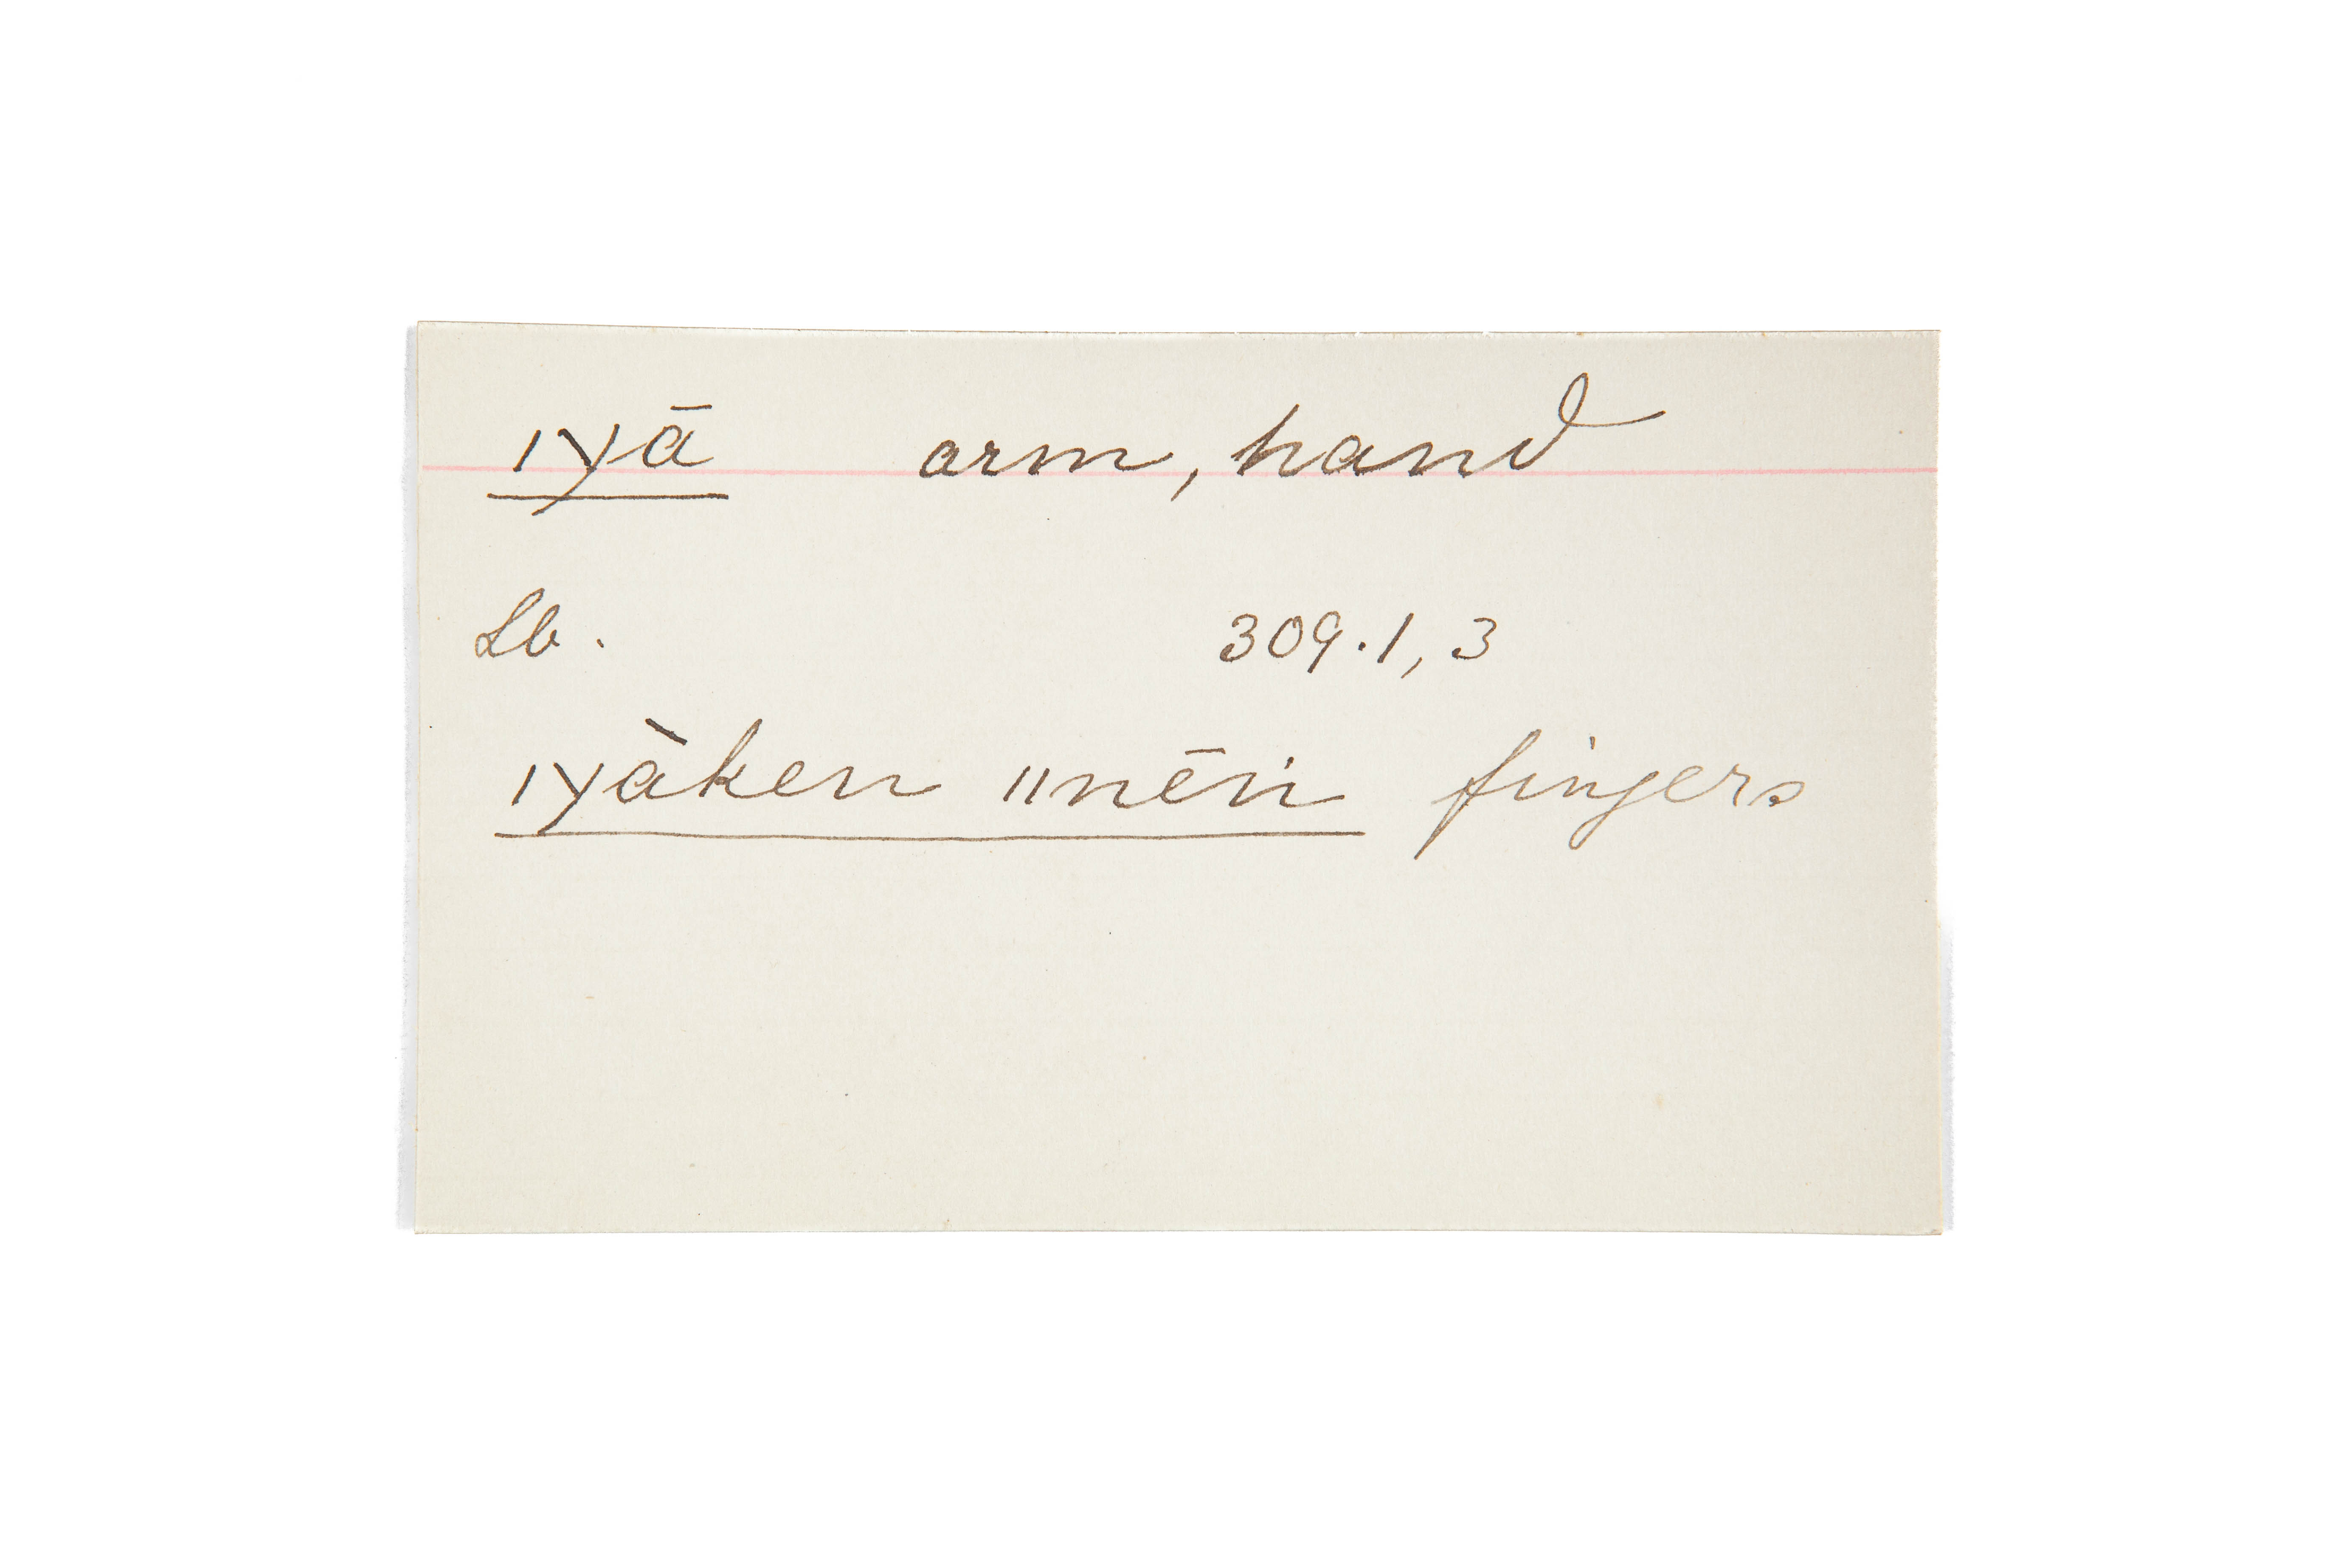 ıyā arm, hand
Lb. 309.1, 3
ıyàken ıınēṅ fingers